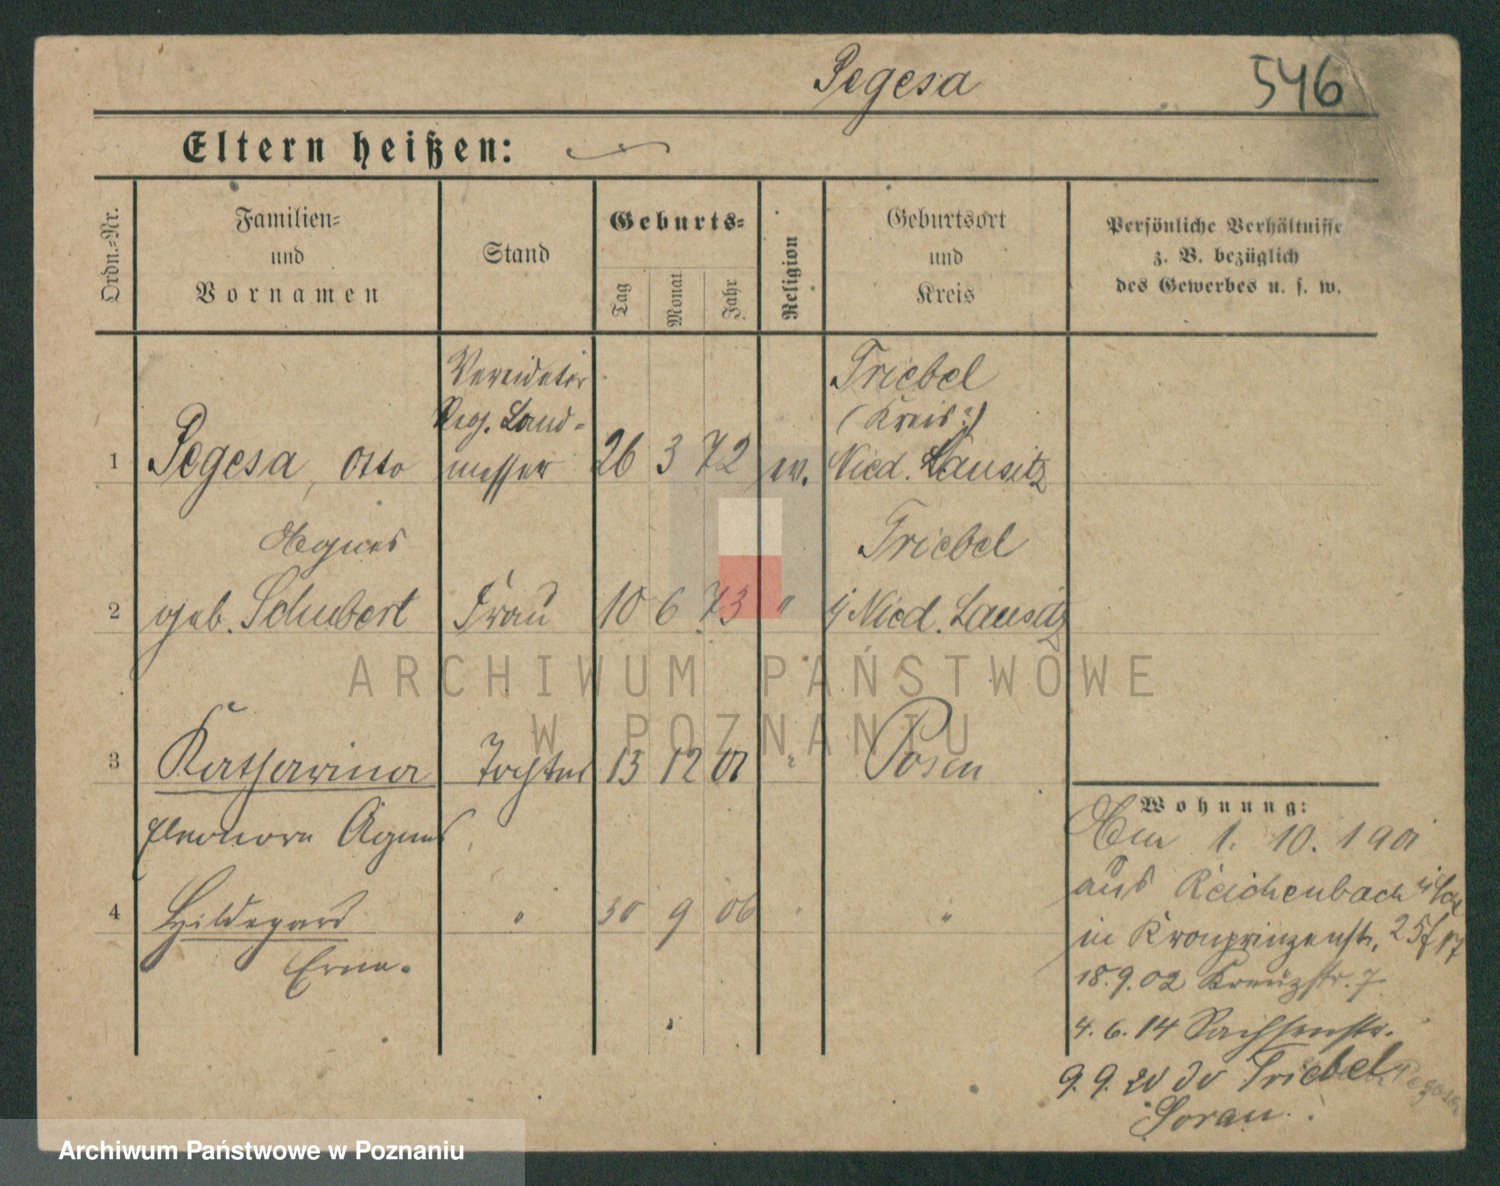 Pegesa 546
Eltern heißen:
Ordn.=Nr.
Familien=
und
Vornamen
Stand
Geburts=
Tag
Monat
Jahr
Religion
Geburtsort
und
Kreis
Persönliche Verhältnisse
z. B. bezüglich
des Gewerbes u. s. w.
Vereideter
Reg. Land-
1 Pegesa, Otto messer 26 3 72 ev.
Triebel
(Kreis?)
Nied. Lausitz
Agnes Triebel
2 geb. Schubert Frau 10 6 73 " i/ Nied. Lausitz
3 Katharina Tochter 13 12 01 " Posen
Eleonore Agnes
4 Hildegard " 30 9 06 " "
Erna.
Wohnung:
Am 1. 10. 1901
aus Reichenbach
in Kronprinzenstr.
18.9.02 Kreuzstr. 7
4. 6. 14 Sachsenstr.
9. 9. 20 Triebel
Sorau.
ARCHIWUM PAŃSTWOWE
W POZNANIU
Archiwum Państwowe w Poznaniu